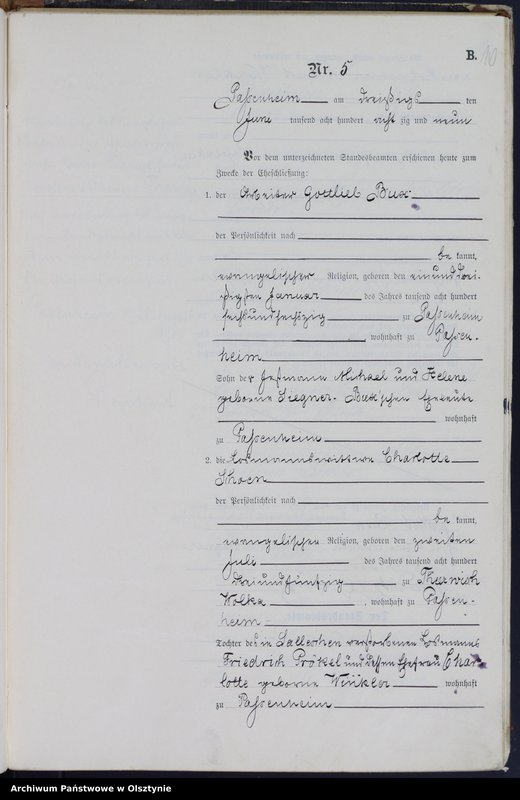 B.
10
Nr. 5
Passenheim am dreißigs ten
Juni tausend acht hundert acht zig und neun
Vor dem unterzeichneten Standesbeamten erschienen heute zum
Zwecke der Eheschließung:
1. der Arbeiter Gottlieb Bux
der Persönlichkeit nach
be kannt,
evangelischer Religion, geboren den einunddrei-
ßigsten Januar des Jahres tausend acht hundert
sechsundsechszig zu Passenheim
, wohnhaft zu Passen-
heim
Sohn der Michael und Helene
geborne Bux'schen Eheleute
wohnhaft
zu Passenheim
2. die Losmannswittwe Charlotte
der Persönlichkeit nach
be kannt,
evangelischer Religion, geboren den zweiten
Juli des Jahres tausend acht hundert
dreiundfünfzig zu
, wohnhaft zu Passen-
heim
Tochter des in verstorbenen Losmanns
Friedrich Prökel und dessen Ehefrau Char-
lotte geborne Winkler wohnhaft
zu Passenheim
Archiwum Państwowe w Olsztynie